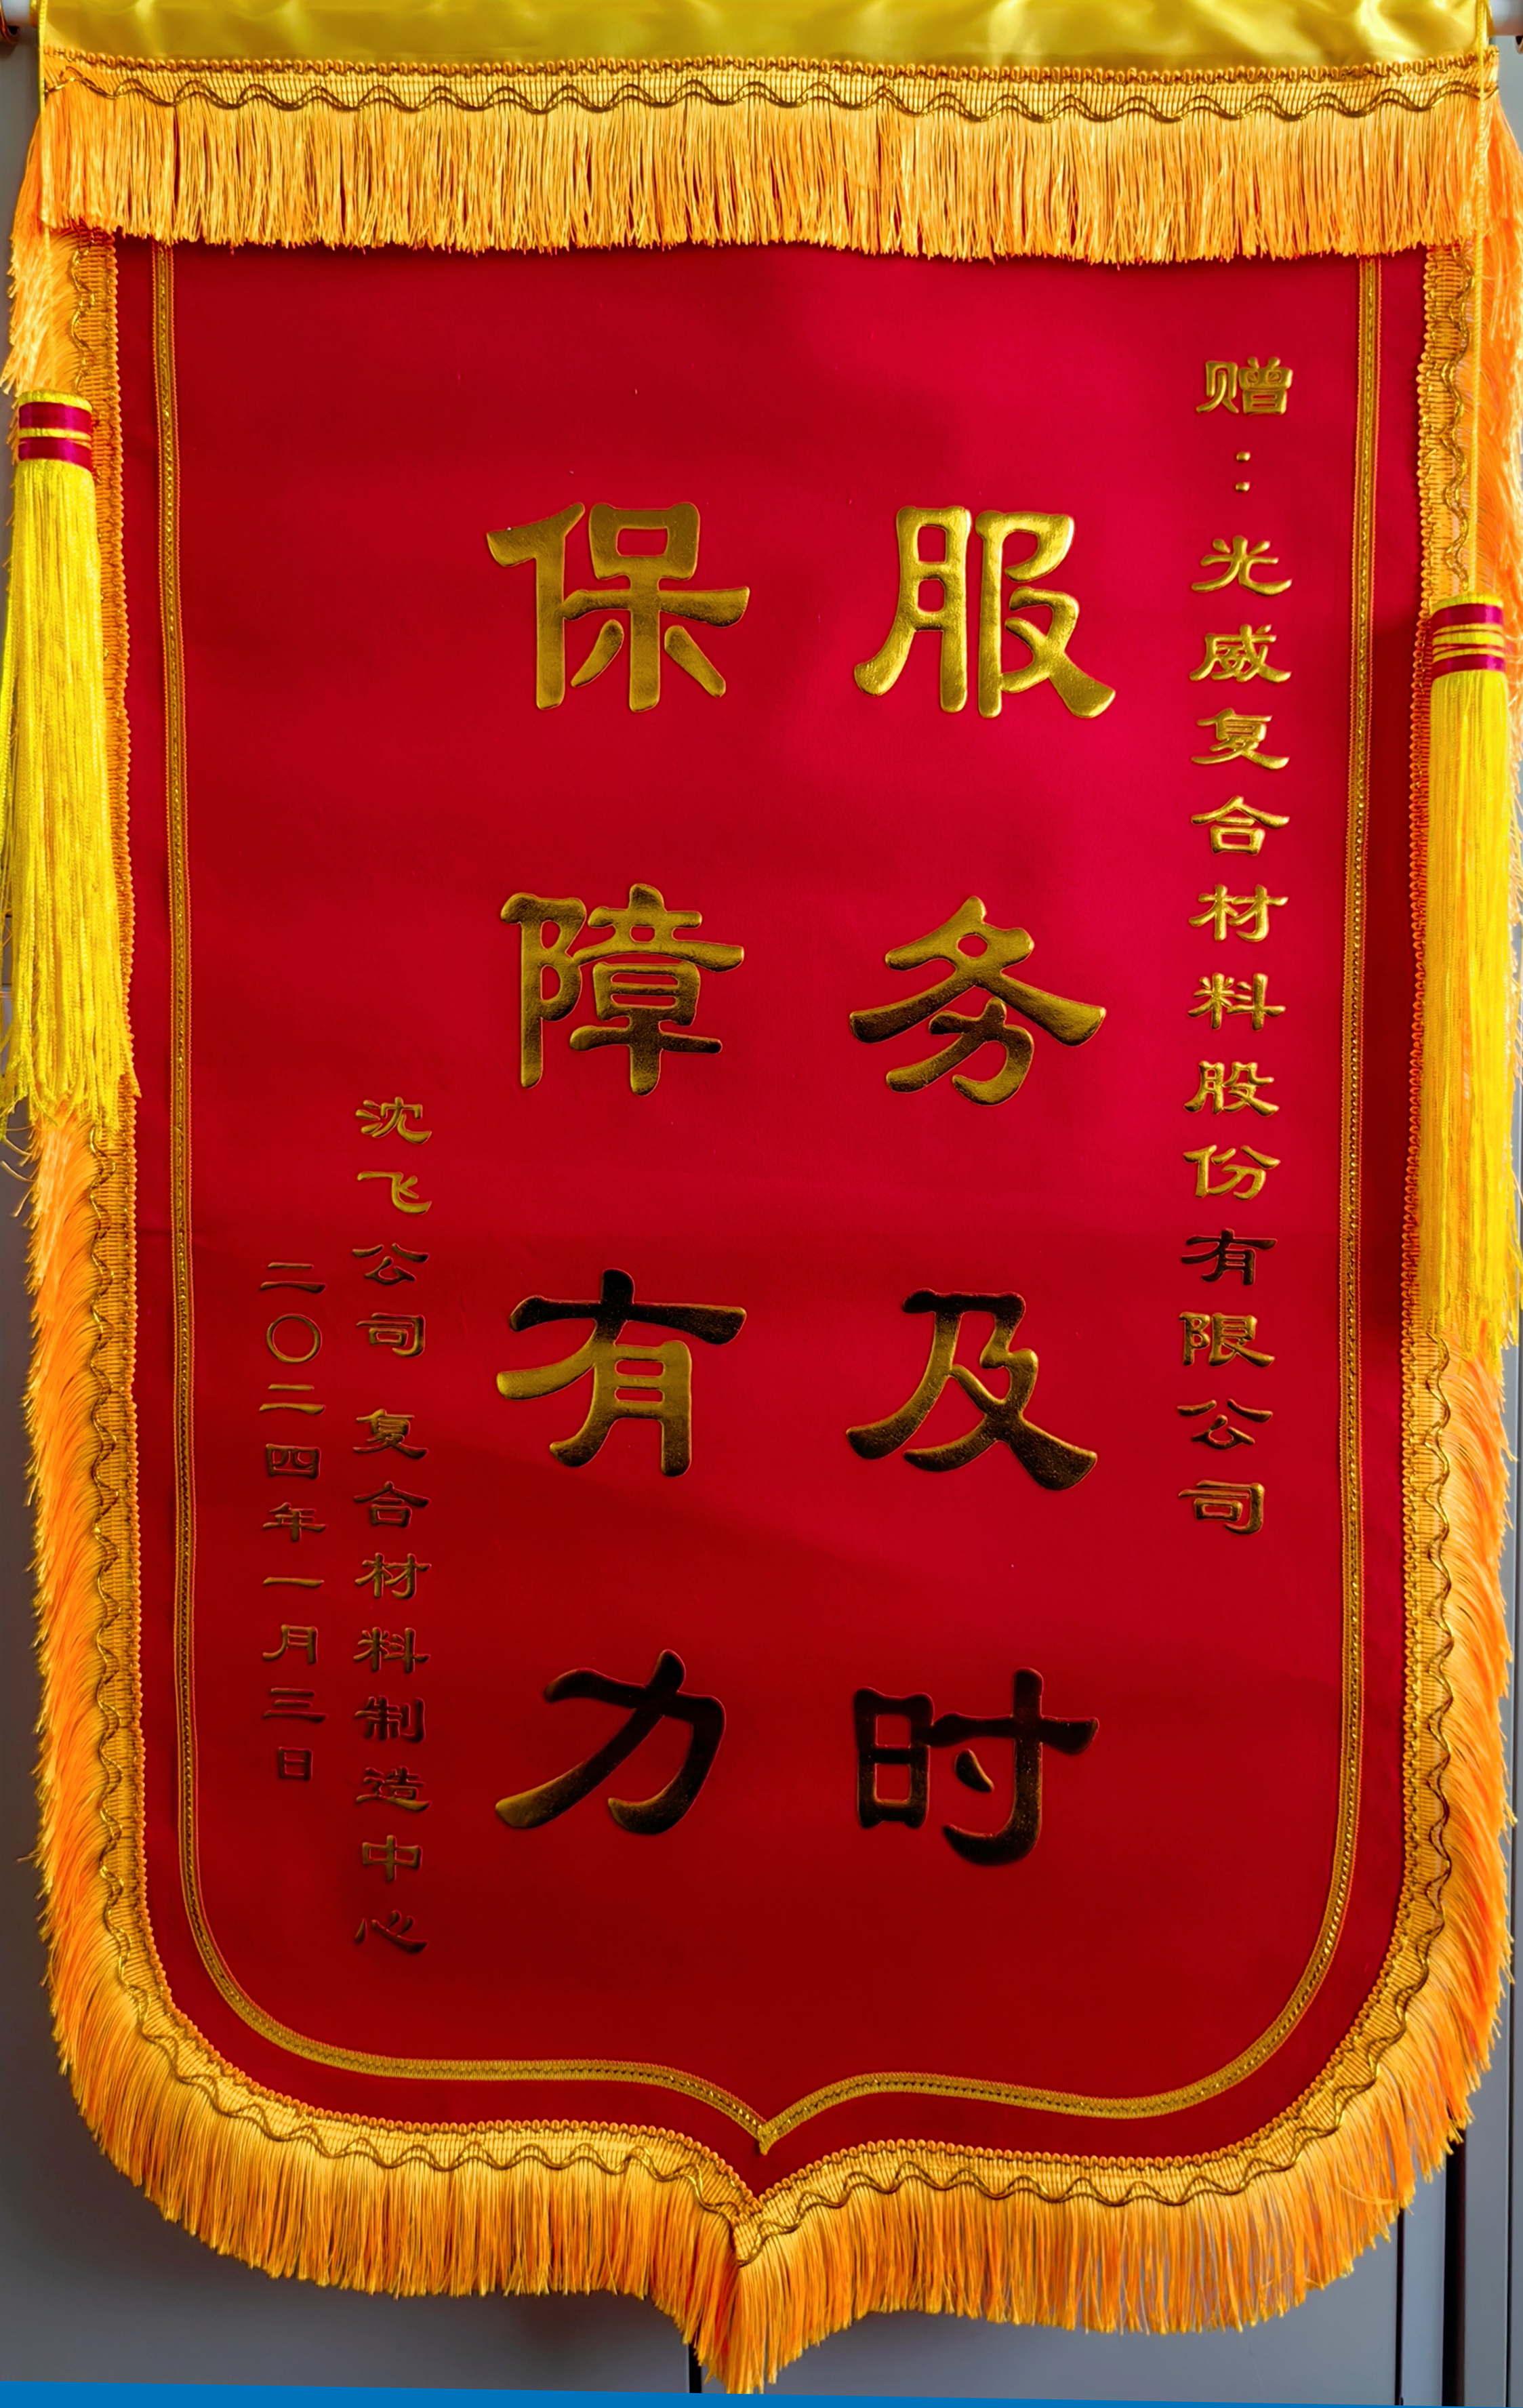 赠：光威复合材料股份有限公司
服务及时
保障有力
沈飞公司 复合材料制造中心
二〇二四年一月三日